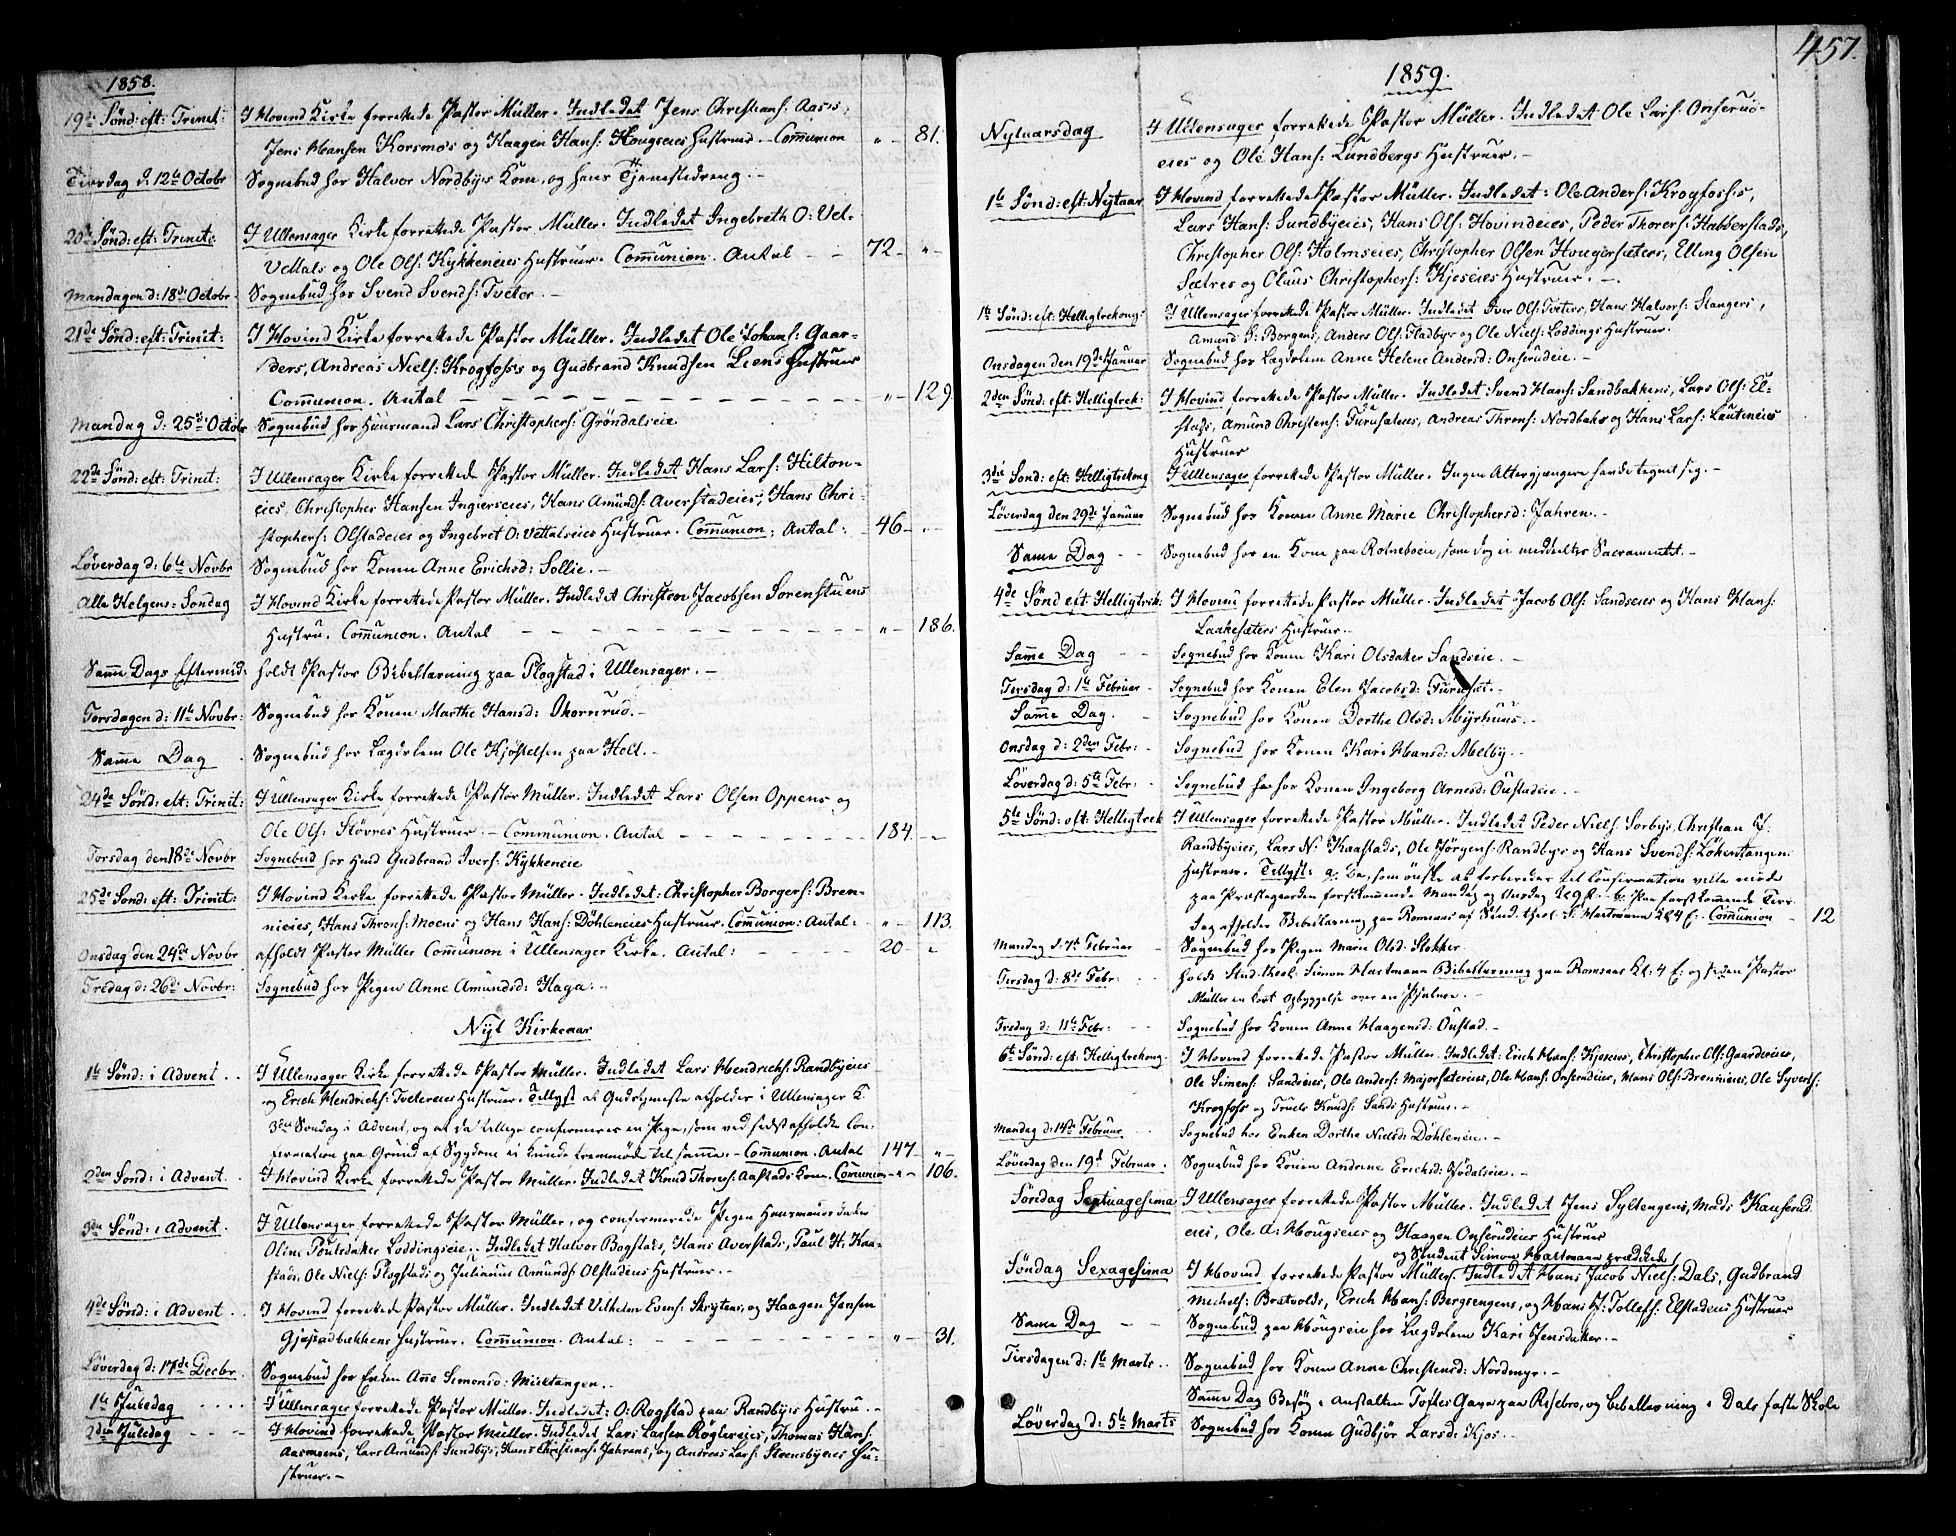 1858.
19de Sønd: eft: Trinit: I Hovind Kirke forrettede Pastor Müller. Indledet Jens Christians: Aasis,
Jens Hansen Korsmos og Haagen Hans: Hougseies Hustruer. Communion „ – 81.
Tirsdag d: 12te Octobr Sognebud hos Halvor Nordbyes Kone, og hans Tjenestedreng. –
20de Sønd: eft: Trinit: I Ullensager Kirke forrettede Pastor Müller. Indledet Ingebreth O: Vet-
Vettals og Ole Ols: Kykkeneies Hustruer. Communion. Antal – – 72 – „ –
Mandagen d: 18de Octobr Sognebud hos Svend Svends: Tveter. –
21de Sønd: eft: Trinit: I Hovind Kirke forrettede Pastor Müller. Indledet Ole Johans: Gaar-
ders, Andreas Niels: Krogfoss og Gudbrand Knudsen Liens Hustruer
Communion. Antal – – – „ – 129.
Mandag d: 25de Octobr Sognebud hos Huusmand Lars Christophers: Gröndalseie
22de Sønd: eft: Trinit: I Ullensager Kirke forrettede Pastor Müller. Indledet Hans Lars: Hilton-
eies, Christopher Hansen Ingierseies, Hans Amunds: Averstadeies, Hans Chri-
stophers: Olstadeies og Ingebret O: Vettalseies Hustruer. Communion; Antal: – 46 – „ –
Løverdag d: 6te Novbr Sognebud hos Konen Anne Erichsd: Sollie. –
Alle Helgens-Søndag I Hovind Kirke forrettede Pastor Müller. Indledet Christen Jacobsen Sörenstuens
Hustru. Communion. Antal – – – „ – 186.
Samme Dags Eftermid: holdt Pastor Bibellæsning paa Flogstad i Ullensager. –
Torsdagen d: 11te Novbr: Sognebud hos Konen Marthe Hansd: Skornrud. –
Samme Dag Sognebud hos Lægdslem Ole Kjöstelsen paa Holt. –
24de Sønd: eft: Trinit: I Ullensager Kirke forrettede Pastor Müller. Indledet Lars Olsen Oppens og
Ole Ols: Stövres Hustruer. – Communion. Antal – – – 184 – –
Torsdag den 18de Novbr Sognebud hos Huusmd Gudbrand Ivers: Kykkeneie
25de Sønd: eft: Trinit: I Hovind Kirke forrettede Pastor Müller. Indledet: Christopher Borgers: Bren-
nieies, Hans Throns: Moens og Hans Hans: Döhleneies Hustruer. Communion: Antal: „ – 113.
Onsdag den 24de Novbr afholdt Pastor Müller Communion i Ullensager Kirke. Antal: – – 20 – –
Fredag d: 26de Novbr: Sognebud hos Pigen Anne Amundsd: Haga. –
Nyt Kirkeaar
1ste Sønd: i Advent . . I Ullensager Kirke forrettede Pastor Müller. Indledet Lars Hendrichs: Randbyeies
og Erich Hendrichs: Tvetereies Hustruer. Tillyst at Gudstjeneste afholdes i Ullensager K.
3die Søndag i Advent, og at da tillige confirmeres en Pige, som ved sidst afholdte Con-
firmation paa Grund af Sygdom ei kunde fremmøde til samme. – Communion. Antal 147 – „ –
2den Sønd: i Advent. I Hovind Kirke forrettede Pastor Müller. Indledet Knud Thores: Aastads Kone. Communion – „ – 106.
3die Sønd: i Advent. I Ullensager forrettede Pastor Müller, og confirmerede Pigen Huusmandsdatter
Oline Poulsdatter Loddingseie. Indledet Halvor Bogstads, Hans Averstads, Paul H: Kaa-
stads, Ole Niels: Flogstads og Julianus Amunds: Olstadeies Hustruer. –
4de Sønd: i Advent . I Hovind forrettede Pastor Müller. Indledet Vilhelm Evens: Skrytens, og Haagen Jensen
Gjæstadbakkens Hustruer. Communion. Antal: – – – „ – 31.
Løverdag d: 17de Decbr. Sognebud hos Enken Anne Simensd: Mieltangen. –
1ste Juledag . . . . I Ullensager forrettede Pastor Müller. Indledet: O: Rogstad paa Randbyes Hustru. –
2den Juledag – – – I Hovind forrettede Pastor Müller. Indledet Lars Larsen Röglereies, Thomas Hans:
Aasmoens, Lars Amunds: Sundbys, Hans Christians: Jahrens, og Andreas Lars: Steensbyeies Hu-
struer. –
457.
1859.
Nytaarsdag I Ullensager forrettede Pastor Müller. Indledet Ole Lars: Onserud-
eies og Ole Hans: Lundbergs Hustruer. –
1ste Sønd: eft: Nytaar I Hovind forrettede Pastor Müller. Indledet: Ole Anders: Krogfoss,
Lars Hans: Sundbyeies, Hans Ols: Hovindeies, Peder Thores: Habberstads,
Christopher Ols: Holmseies, Christopher Olsen Hougersæters, Elling Olsen
Sætres og Claus Christophers: Kjoseies Hustruer. –
1ste Sønd: eft: Helligtrekong: I Ullensager forrettede Pastor Müller. Indledet Iver Ols: Tveters, Hans Halvors: Stangers,
Amund P: Borgens, Anders Ols: Fladbys og Ole Niels: Loddings Hustruer.
Onsdagen den 19de Januar Sognebud hos Lægdslem Anne Helene Andersd: Onserudeie. –
2den Sønd: eft: Helligtrek: I Hovind forrettede Pastor Müller. Indledet Svend Hans: Sandbakkens, Lars Ols: El-
stads, Amund Christens: Furusæteies, Andreas Throns: Nordbakr og Hans Lars: Lauteneies
Hustruer
3die Sønd: eft: Helligtrekong I Ullensager forrettede Pastor Müller. Ingen Altergjængere havde tegnet sig. –
Løverdag den 29de Januar Sognebud hos Konen Anne Marie Christophersd: Jahren. –
Samme Dag – – Sognebud hos en Kone paa Rotneboeie, som dog ei meddeltes Sacramentet. –
4de Sønd eft: Helligtrek: I Hovind forrettede Pastor Müller. Indledet Jacob Ols: Sandseies og Hans Hans:
Laakesæters Hustruer. –
Samme Dag – – Sognebud hos Konen Kari Olsdatter Sandseie. –
Tirsdag d: 1ste Februar – Sognebud hos Konen Elen Jacobsd: Furusæt. –
Samme Dag. – Sognebud hos Konen Dorthe Olsd: Myrhuus. –
Onsdag d: 2den Febr: – Sognebud hos Konen Kari Hansd: Melby. –
Løverdag d: 5te Febr: – Sognebud hos Konen Ingeborg Arnesd: Oustadeie. –
5te Sønd: eft: Helligtrek I Ullensager forrettede Pastor Müller. Indledet Peder Niels: Sorbys, Christian J:
Randbyeies, Lars N: Kaastads, Ole Jörgens: Randbys og Hans Svends: Lökentangens
Hustruer. Tillyst: a. De, som önske at forberedes til Confirmation ville möde
paa Præstegaarden förstkommende Mandag og Onsdag Kl 9 f. – b. Paa förstkommende Tirs-
dag afholdes Bibellæsning paa Romsaas af Stud. theol. S. Hartmann Kl 4 E. – Communion – 12
Mandag d: 7de Februar – Sognebud hos Pigen Marie Olsd: Stokker
Tirsdag d: 8de Febr: holdt Stud. theol: Simon Hartmann Bibellæsning paa Romsaas Kl: 4 E: og siden Pastor
Müller en kort Opbyggelse over en Psalme. –
Fredag d: 11te Febr: – – Sognebud hos Konen Anne Haagensd: Oustad. –
6te Sønd: eft: Helligtrekong. I Hovind forrettede Pastor Müller. Indledet: Erich Hans: Kjoseies, Christopher Ols: Gaardereies,
Ole Simens: Sandeies, Ole Anders: Majorsætereies, Ole Hans: Onserudeies, Hans Ols: Brennieies, Ole Syvers:
Krogfoss og Truels Knuds: Sands Hustruer. –
Mandag d: 14de Februar . . Sognebud hos Enken Dorthe Nielsd: Döhleneie. –
Løverdag den 19de Februar. Sognebud hos Konen Andrine Erichsd: Jödalseie. –
Söndag Septuagesima I Ullensager forrettede Pastor Müller. Indledet Jens Syltengens, Mads Kauserud
eies, Ole A: Hougseies og Haagen Onserudeies Hustruer
og Student Simon Hartmann prædikede
Söndag Sexagesima I Hovind forrettede Pastor Müller. Indledet Hans Jacob Niels: Dals, Gudbrand
Michels: Bratvolds, Erich Hans: Bergsengens, og Hans J: Tollefs: Elstadeies Hustruer
Samme Dag – – Sognebud paa Hougseie hos Lægdslem Kari Jensdatter. –
Tirsdagen d: 1ste Marts . . Sognebud hos Konen Anne Christensd: Nordmyr. –
Samme Dag Besög i Anstalten Toftes Gave paa Risebro, og Bibellæsning i Dals faste Skole
Løverdag d: 5te Marts Sognebud hos Konen Gudbjör Larsd: Kjos. –